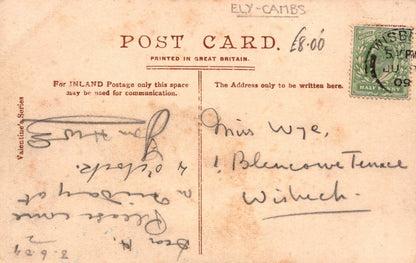 ELY-CAMBS
£8.00
POST CARD.
PRINTED IN GREAT BRITAIN.
WISBE
5 PM
JU
09
HALFPENNY
For INLAND Postage only this space
may be used for communication.
The Address only to be written here.
Valentine's Series
Dear H.
Please come
Friday at
4 o'clock.
8.6.09
Miss Wye,
1 Blencowe Terrace
Wisbech.